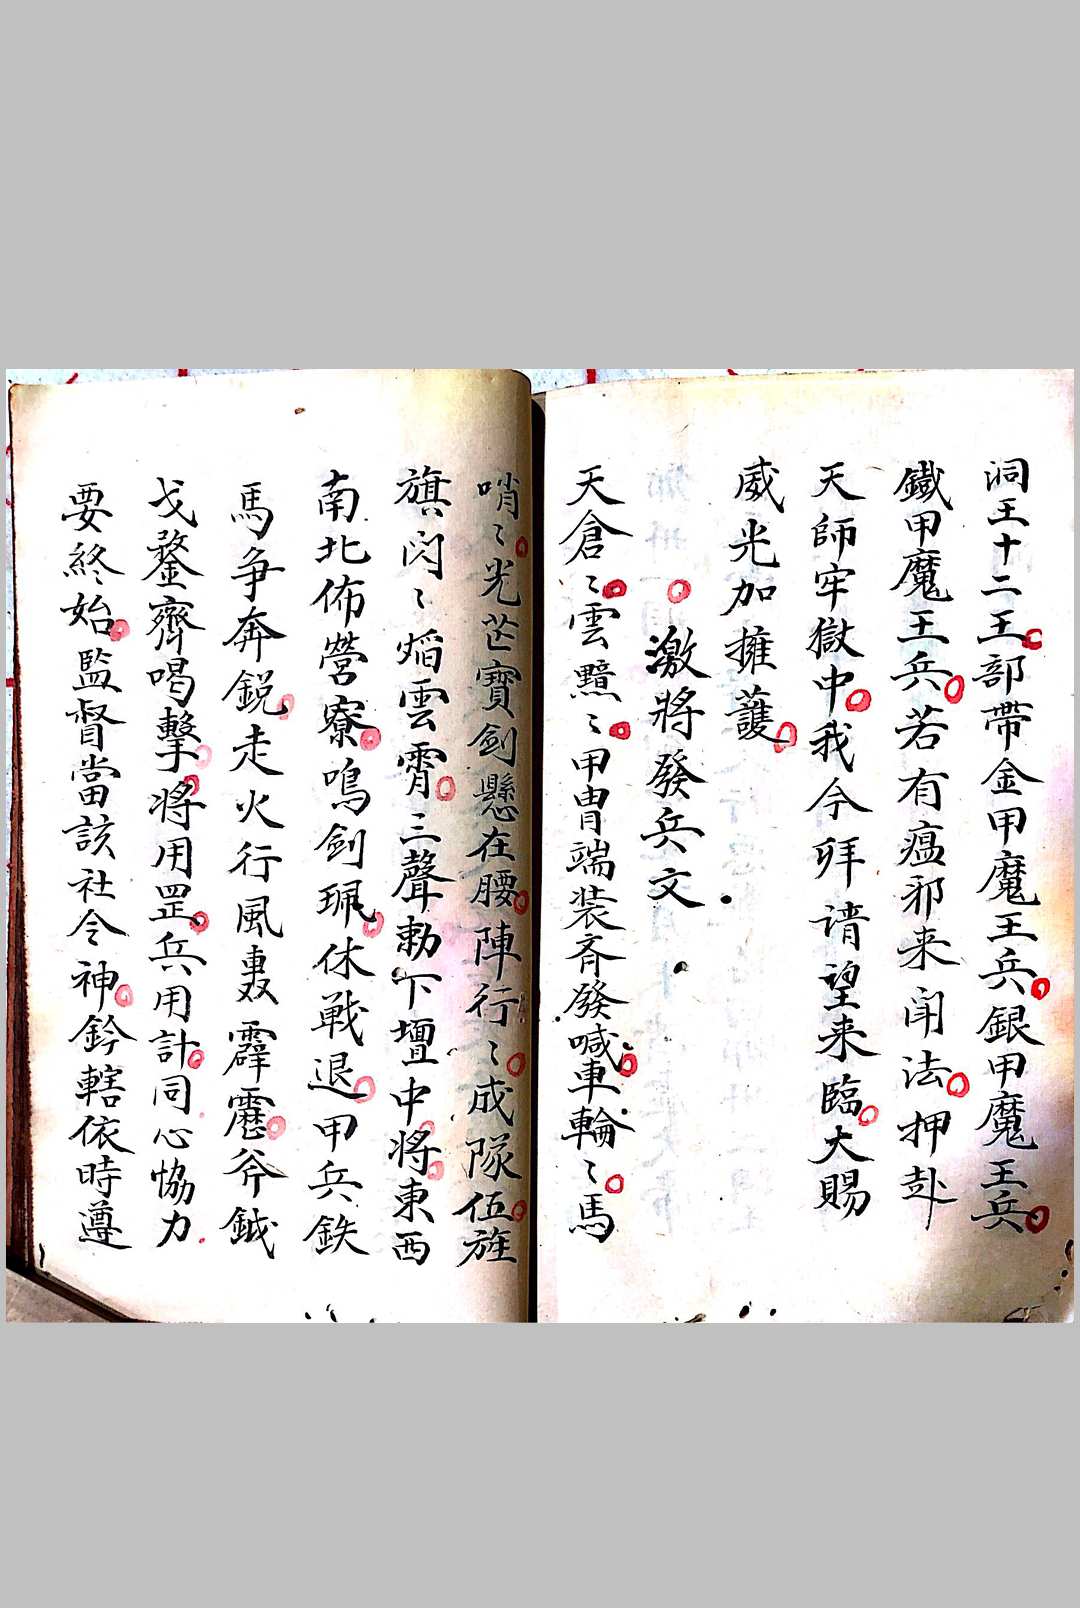 洞王十二王部帶金甲魔王兵銀甲魔王兵
鐵甲魔王兵若有瘟邪来闹法押赴
天師牢獄中我今拜請望来臨大賜
威光加擁護
激將發兵文
天倉〻雲黯〻甲冑端装斉發喊車輪〻馬
哨〻光芒寶劍懸在腰陣行〻成隊伍旌
旗閃〻焰雲霄三聲勅下壇中將東西
南北佈營寮鳴劍珮休戰退甲兵鉄
馬争奔鋭走火行風轟霹靂斧鉞
戈鍪齊喝擊將用罡兵用計同心恊力
要終始監督當該社令神鈐轄依時遵